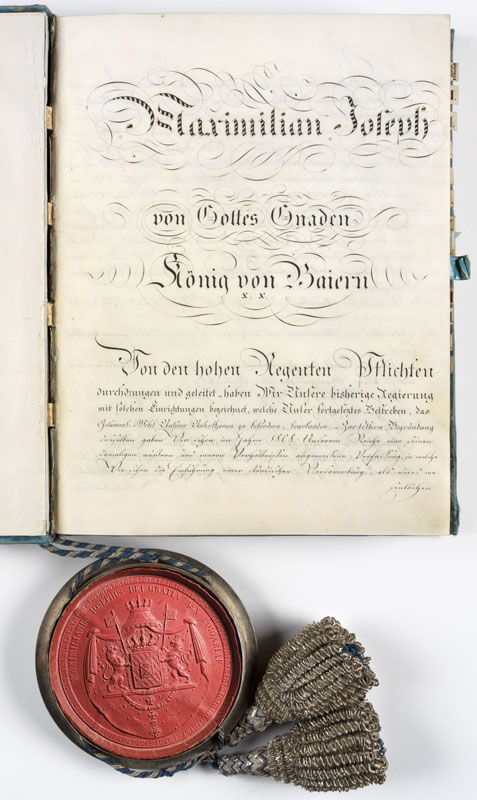 Maximilian Joseph
von Gottes Gnaden
König von Baiern
x. x.
Von den hohen Regenten Pflichten
durchdrungen und geleitet – haben Wir Unsere bisherige Regierung
mit solchen Einrichtungen bezeichnet, welche Unser fortgesetztes Bestreben, das
Gesammt-Wohl Unserer Unterthanen zu befördern, beurkunden. – Zur festern Begründung
desselben gaben Wir schon im Jahre 1808. Unserem Reiche eine seinen
damaligen äussern und innern Verhältnissen angemessene Verfassung, in welche
Wir schon die Einführung einer ständischen Versammlung, als eines we
sentlichen
MAXIMILIANUS IOSEPHUS DEI GRATIA REX BOIOARIAE